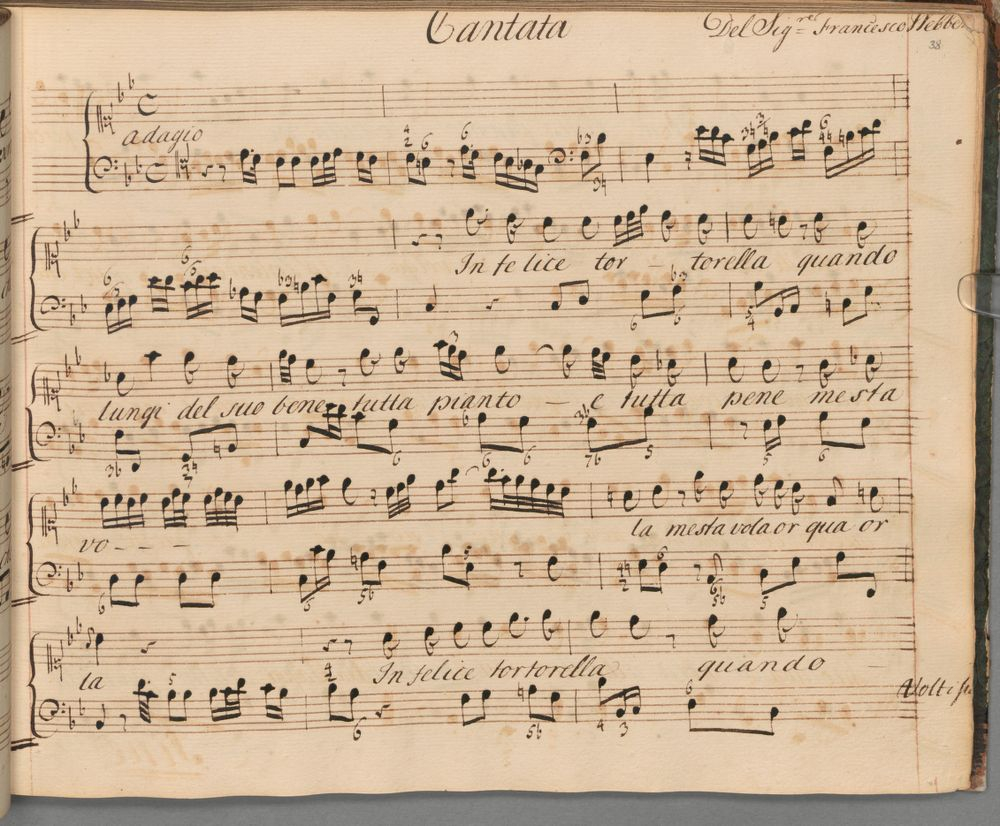 Cantata
Del Sig.re Francesco
38
adagio
Infelice tor - torella quando
lungi del suo bene tutta pianto - e tutta pene mesta
vo - - - la mesta vola or qua or
la Infelice tortorella quando -
Volti